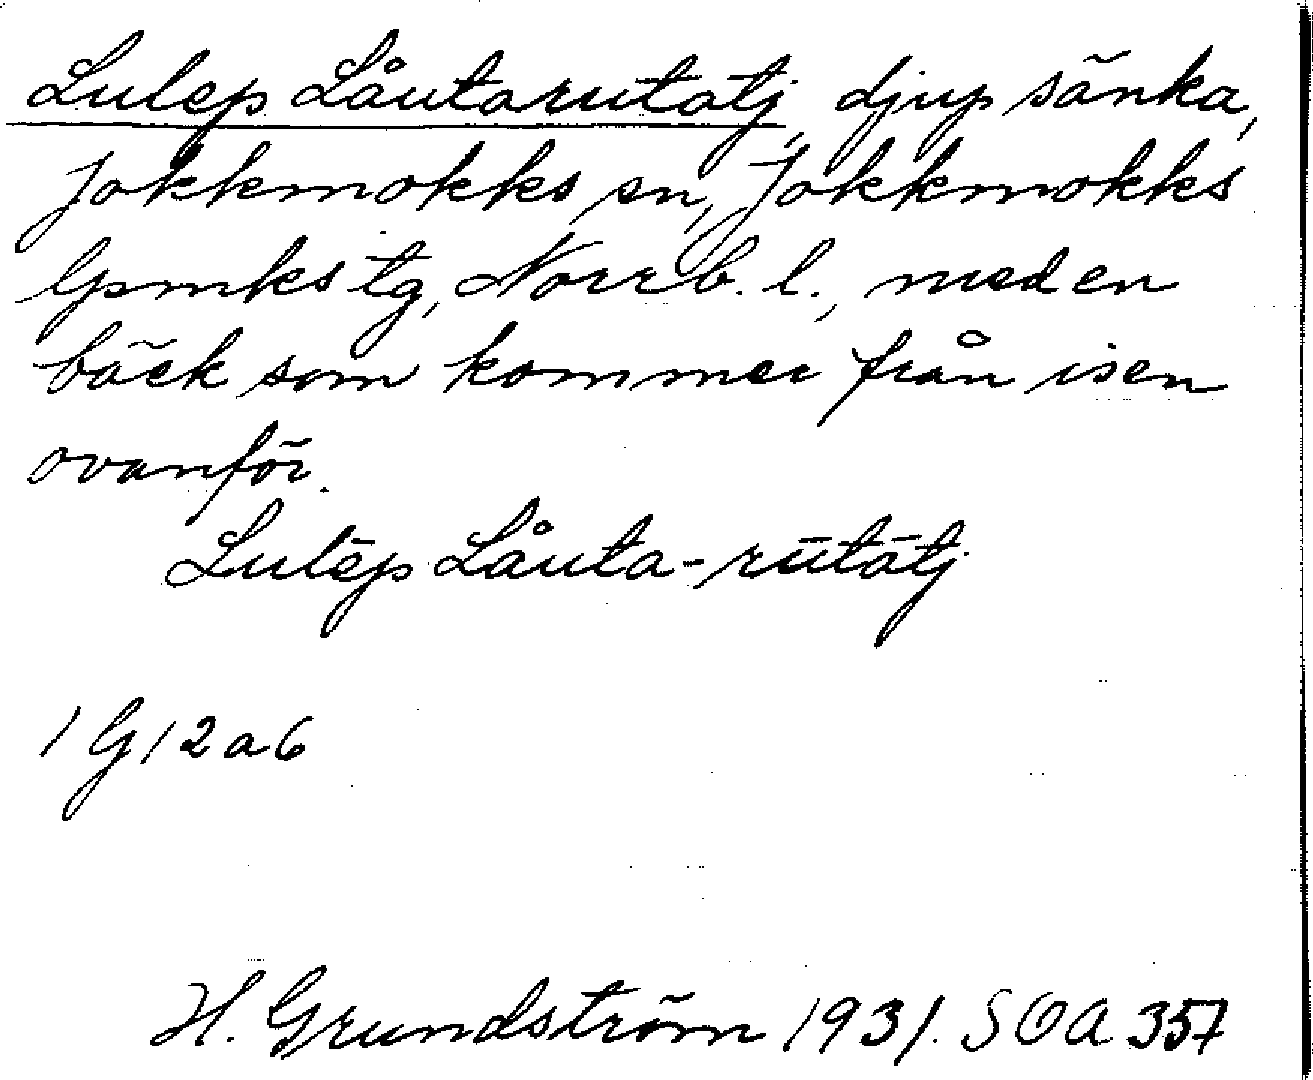 Lulep Låutarutatj, djup sänka,
Jokkmokks sn, Jokkmokks
lpmks tg, Norrb. l., med en
bäck som kommer från isen
ovanför.
Lulēp Låuta-rūtātj
1G12a6
H. Grundström 1931. SOA 357